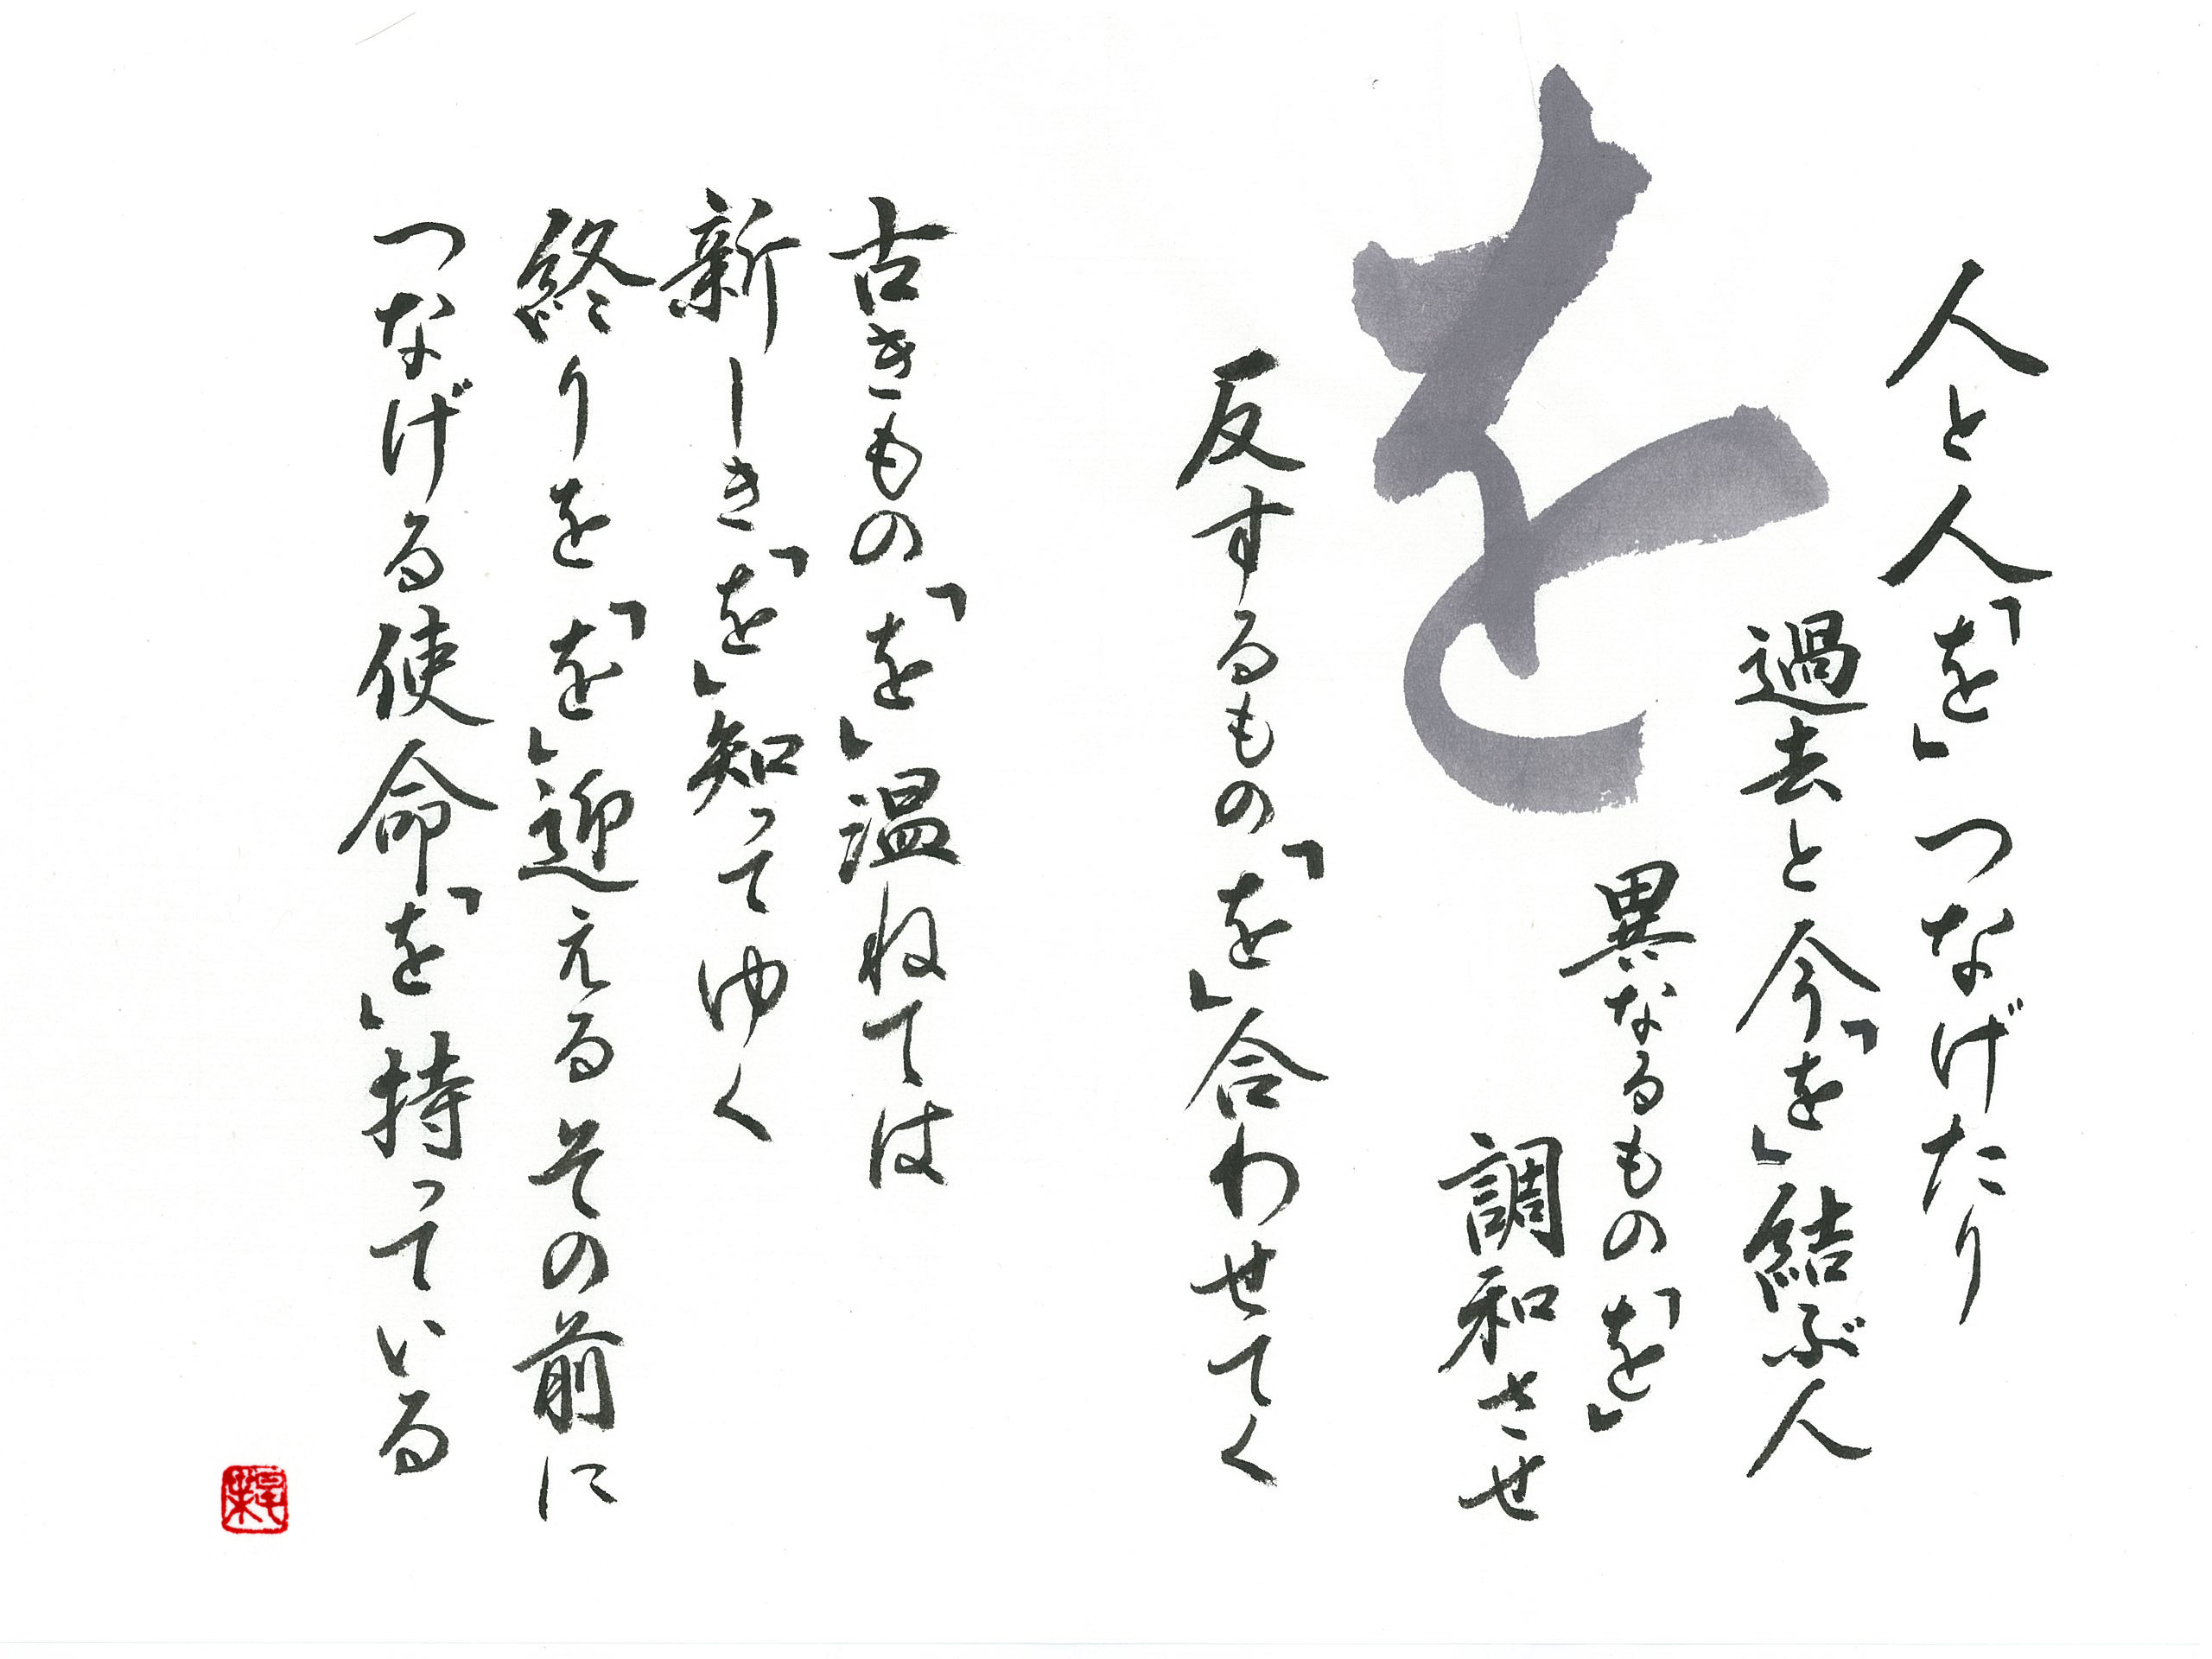 人と人「を」つなげたり
過去と今「を」結ぶ人
異なるもの「を」
調和させ
を
反するもの「を」合わせてく
古きもの「を」温ねては
新しき「を」知ってゆく
終りを「を」迎えるその前に
つなげる使命「を」持っている